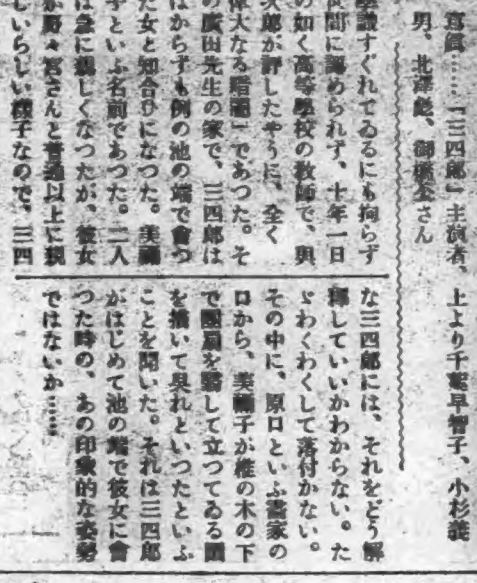 寫眞……「三四郎」主演者、上より千葉早智子、小杉義
男、北澤彪、御橋公さん
學識すぐれてゐるにも拘らず
世間に認められず、十年一日
の如く高等學校の教師で、與
次郎が評したやうに、全く
偉大なる暗闇」であつた。そ
の廣田先生の家で、三四郎は
はからずも例の池の端で會つ
た女と知合ひになつた。美禰
子といふ名前であつた。二人
は急に親しくなつたが、彼女
が野々宮さんと普通以上に親
しいらしい樣子なので、三四
な三四郎には、それをどう解
釋していいかわからない。た
ゞわくわくして落付かない。
その中に、原口といふ畫家の
口から、美禰子が椎の木の下
で團扇を翳して立つてゐる圖
を描いて呉れといつたといふ
ことを聞いた。それは三四郎
がはじめて池の端で彼女に會
つた時の、あの印象的な姿勢
ではないか……